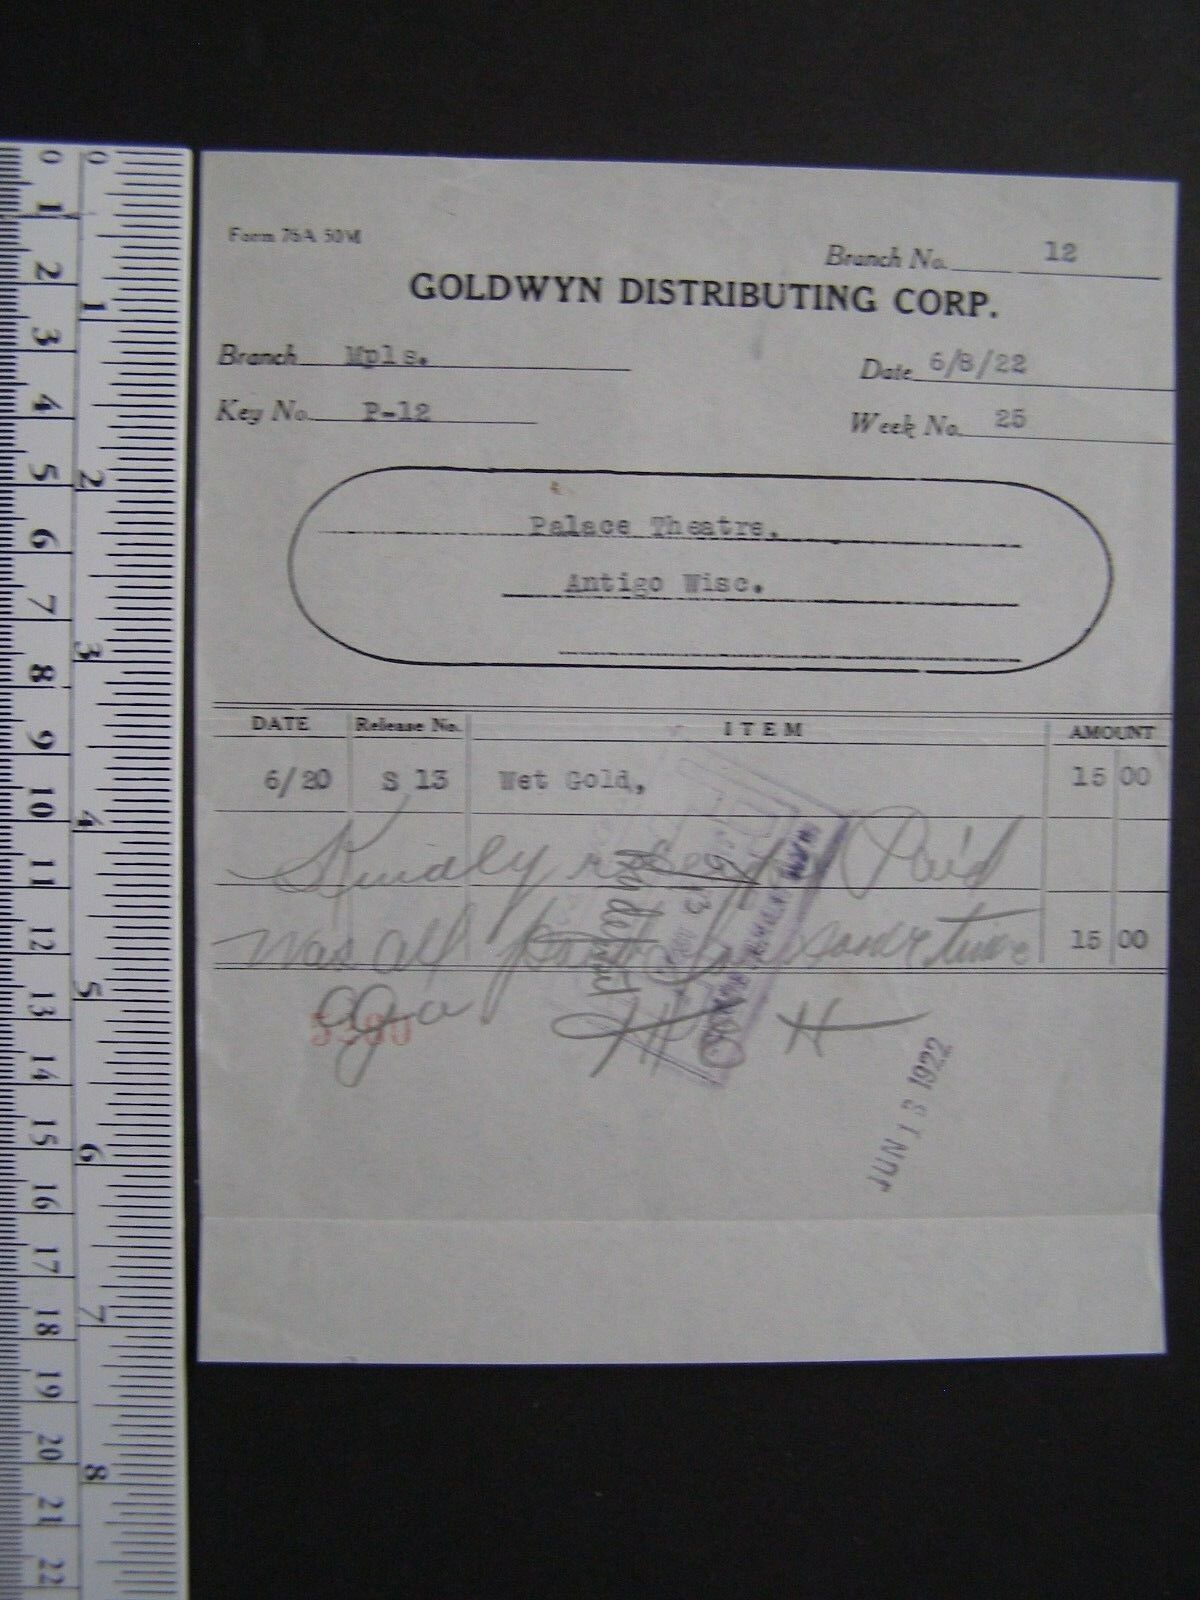 Form 76A 50M
Branch No. 12
GOLDWYN DISTRIBUTING CORP.
Branch Mpls.
Date 6/8/22
Key No. P-12
Week No. 25
Palace Theatre.
Antigo Wisc.
DATE Release No. ITEM AMOUNT
6/20 S 13 Wet Gold, 15 00
Kindly Paid
was all some time 15 00
ago
JUN 13 1922
0 1 2 3 4 5 6 7 8 9 10 11 12 13 14 15 16 17 18 19 20 21 22
0 1 2 3 4 5 6 7 8